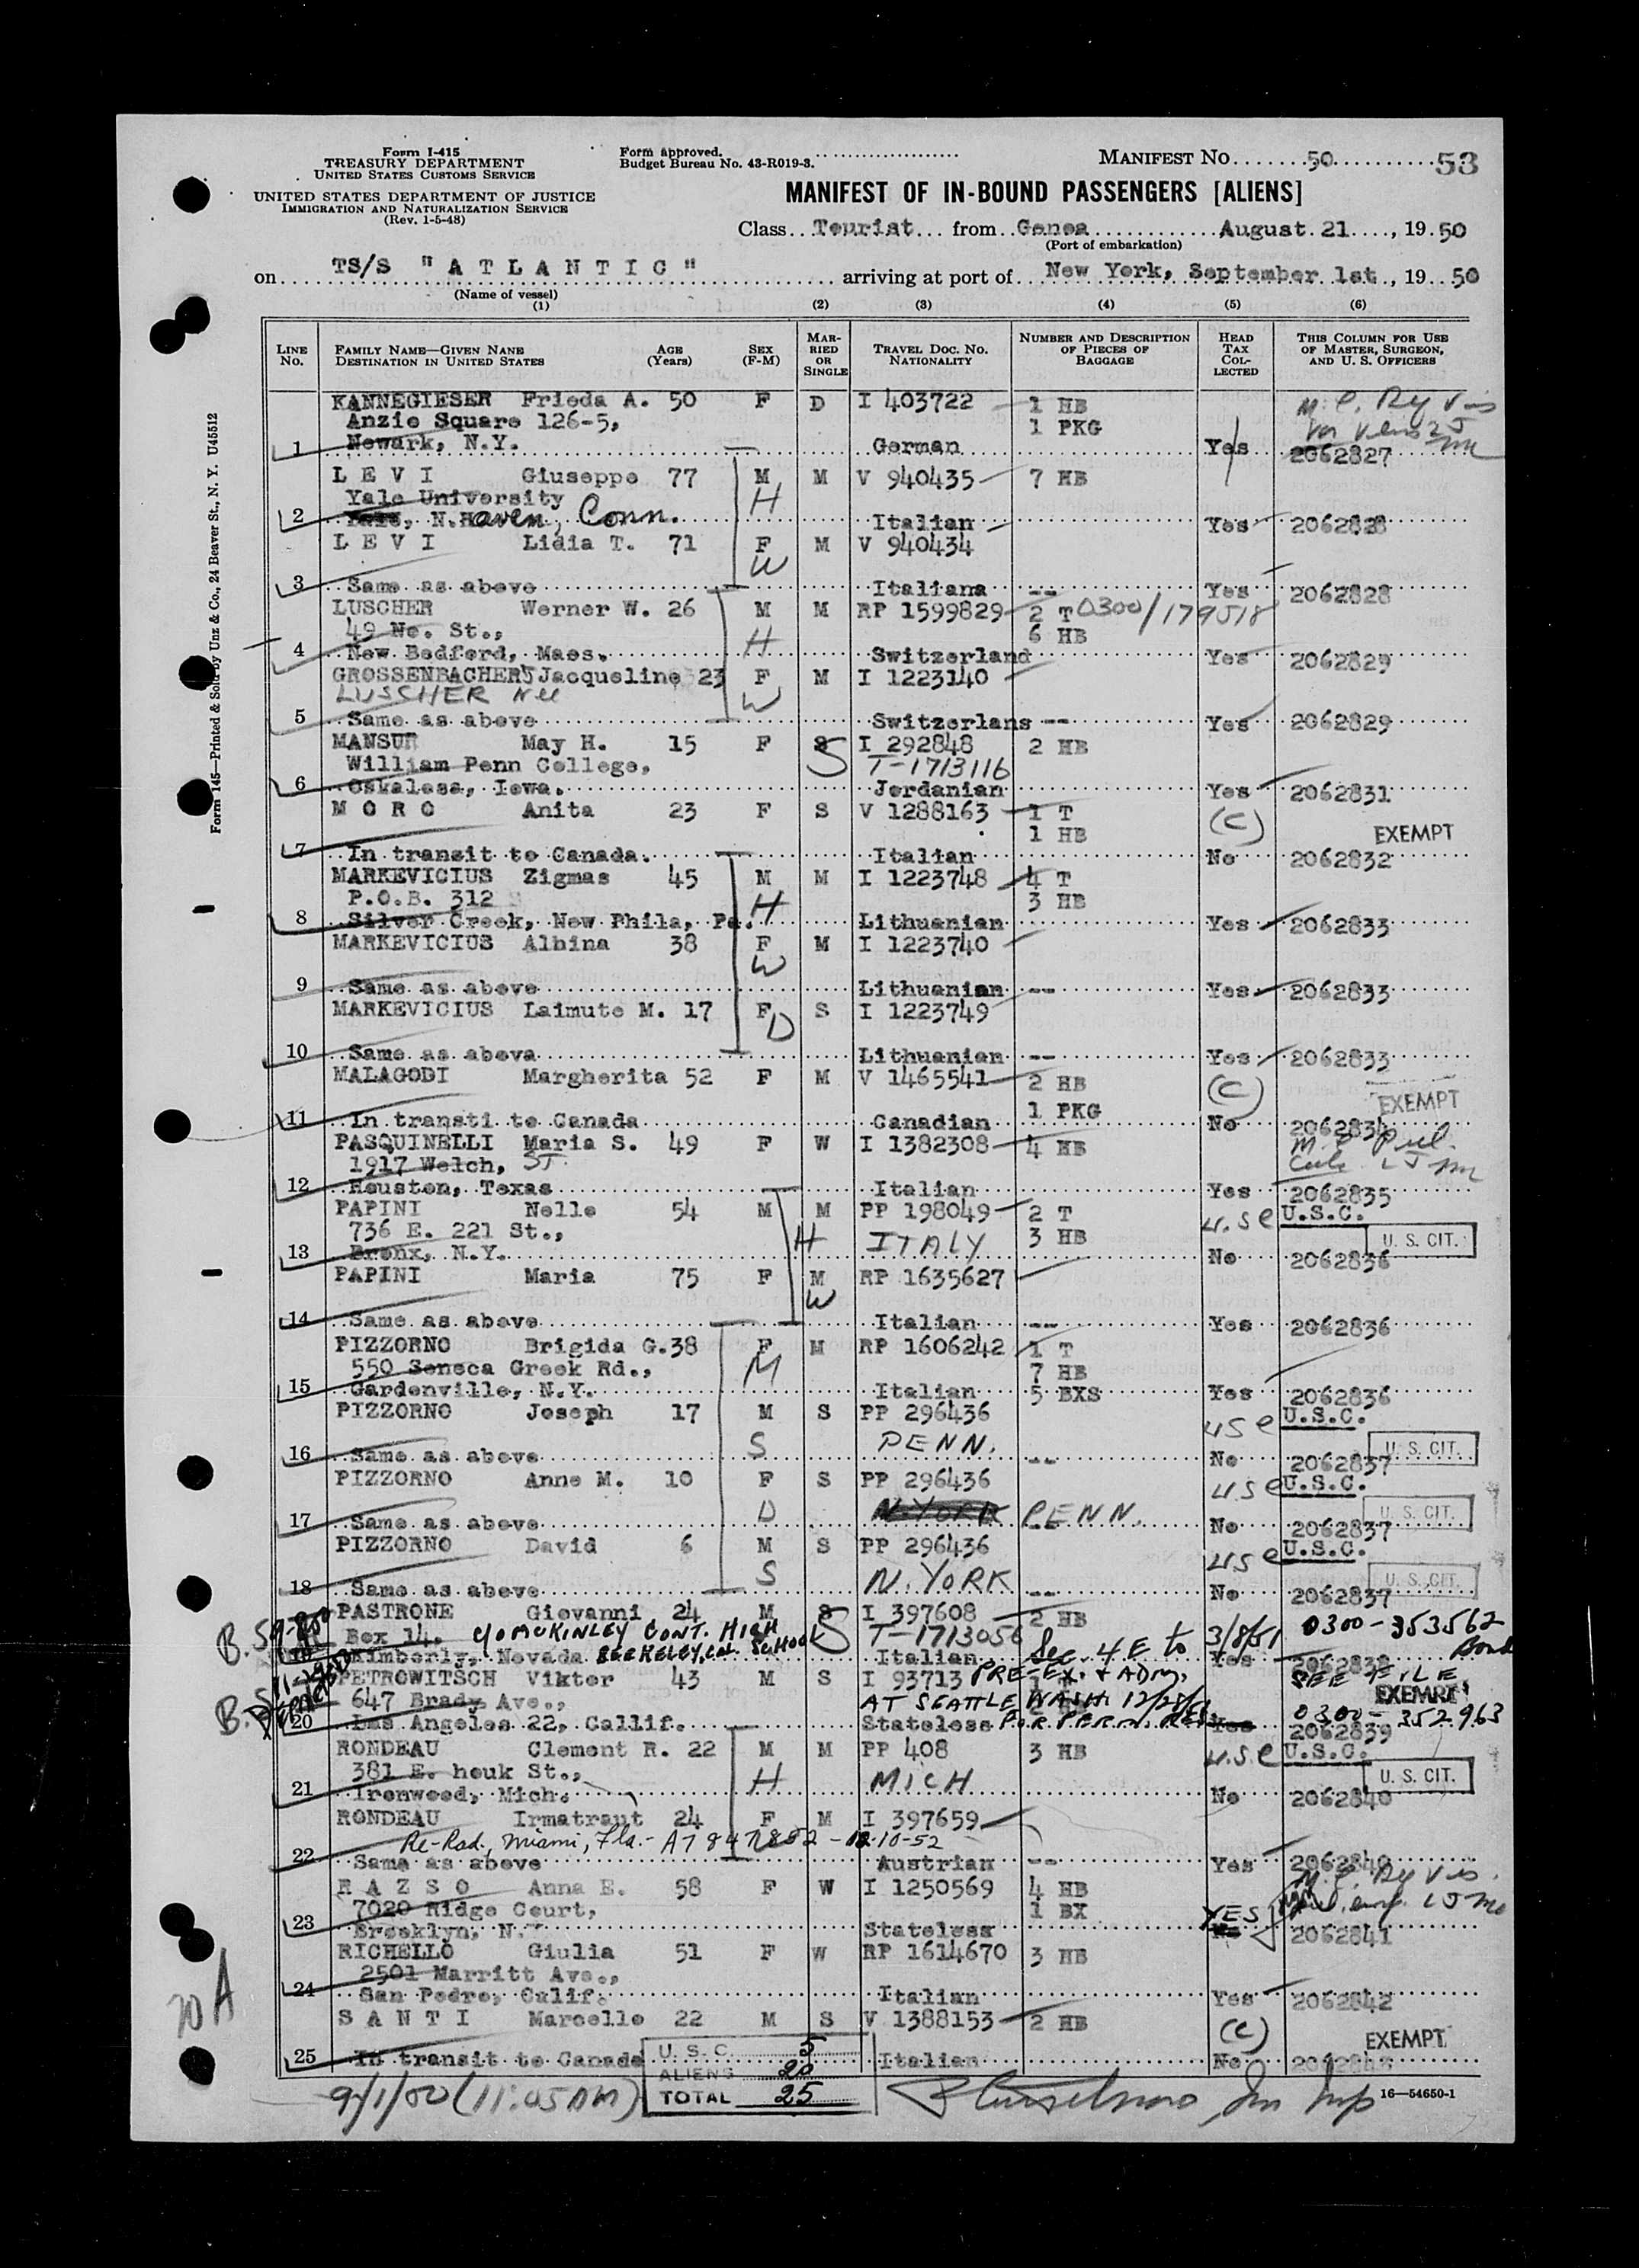 Form I-415
TREASURY DEPARTMENT
UNITED STATES CUSTOMS SERVICE
UNITED STATES DEPARTMENT OF JUSTICE
IMMIGRATION AND NATURALIZATION SERVICE
(Rev. 1-5-48)
Form approved.
Budget Bureau No. 43-R019-3.
MANIFEST NO. 50 53
MANIFEST OF IN-BOUND PASSENGERS [ALIENS]
Class Tourist from Genoa August 21, 19 50
(Port of embarkation)
on TS/S "ATLANTIC" arriving at port of New York, September 1st, 19 50
(Name of vessel)
(1) (2) (3) (4) (5) (6)
LINE NO. FAMILY NAME—GIVEN NAME DESTINATION IN UNITED STATES AGE (Years) SEX (F-M) MARRIED OR SINGLE TRAVEL DOC. NO. NATIONALITY NUMBER AND DESCRIPTION OF PIECES OF BAGGAGE HEAD TAX COLLECTED THIS COLUMN FOR USE OF MASTER, SURGEON, AND U. S. OFFICERS
KANNEGIESER Frieda A. 50 F D I 403722 1 HB
Anzio Square 126-5, 1 PKG
1 Newark, N.Y. German Yes 2062827
L E V I Giuseppe 77 M M V 940435 7 HB
Yale University H
2 N.Haven, Conn. Italian Yes 2062828
L E V I Lidia T. 71 F M V 940434
W
3 Same as above Italiana -- Yes 2062828
LUSCHER Werner W. 26 M M RP 1599829 2 T 0300/179518
49 No. St., H 6 HB
4 New Bedford, Maes. Switzerland Yes 2062829
GROSSENBACHER Jacqueline 23 F M I 1223140
LUSCHER née W
5 Same as above Switzerlans -- Yes 2062829
MANSUR May H. 15 F S I 292848 2 HB
William Penn College, T-1713116
6 Oskalosa, Iowa. Jordanian Yes 2062831
M O R O Anita 23 F S V 1288163 1 T (C)
1 HB EXEMPT
7 In transit to Canada. Italian No 2062832
MARKEVICIUS Zigmas 45 M M I 1223748 4 T
P.O.B. 312 H 3 HB
8 Silver Creek, New Phila, Pa. Lithuanian Yes 2062833
MARKEVICIUS Albina 38 F M I 1223740
W
9 Same as above Lithuanian -- Yes 2062833
MARKEVICIUS Laimute M. 17 F S I 1223749
D
10 Same as above Lithuanian -- Yes 2062833
MALAGODI Margherita 52 F M V 1465541 2 HB (C)
1 PKG EXEMPT
11 In transti to Canada Canadian No 2062834
PASQUINELLI Maria S. 49 F W I 1382308 4 HB
1917 Welch, ST.
12 Houston, Texas Italian Yes 2062835
PAPINI Nello 54 M M PP 198049 2 T u.s.c U.S.C.
736 E. 221 St., H ITALY 3 HB U. S. CIT.
13 Bronx, N.Y. No 2062836
PAPINI Maria 75 F M RP 1635627
W
14 Same as above Italian -- Yes 2062836
PIZZORNO Brigida G.38 F M RP 1606242 1 T
550 Seneca Greek Rd., M 7 HB
15 Gardenville, N.Y. Italian 5 BXS Yes 2062836
PIZZORNO Joseph 17 M S PP 296436 usc U.S.C.
S PENN. U. S. CIT.
16 Same as above -- No 2062837
PIZZORNO Anne M. 10 F S PP 296436 usc U.S.C.
D N. YORK PENN. U. S. CIT.
17 Same as above -- No 2062837
PIZZORNO David 6 M S PP 296436 usc U.S.C.
S N. YORK U. S. CIT.
18 Same as above -- No 2062837
PASTRONE Giovanni 24 M S I 397608 2 HB 3/8/51 0300-353562
Box 14. c/o McKINLEY CONT. HIGH SCHOOL T-1713056 Bond
Kimberly, Nevada BERKELEY, CAL Italian Yes 2062838
Sec. 4 E to
PETROWITSCH Viktor 43 M S I 93713 PRE-EX. & ADM. SEE FILE
647 Brady Ave., AT SEATTLE WASH. EXEMPT
20 Los Angeles 22, Callif. Stateless FOR PERM. RES. Yes 0300-352963
2062839
RONDEAU Clement R. 22 M M PP 408 3 HB u.s.c U.S.C.
381 E. houk St., H MICH U. S. CIT.
21 Ironwood, Mich. No 2062840
RONDEAU Irmatraut 24 F M I 397659
Miami, Fla.- A7 847852
22 Same as above Austrian -- Yes 2062840
R A Z S O Anna E. 58 F W I 1250569 4 HB
7020 Ridge Court, 1 BX YES
23 Brooklyn, N.Y Stateless 2062841
RICHELLO Giulia 51 F W RP 1614670 3 HB
2501 Marritt Ave.,
24 San Pedro, Calif. Italian Yes 2062842
S A N T I Marcello 22 M S V 1388153 2 HB (C)
EXEMPT
25 In transit to Canada Italian No
U. S. C. 5
ALIENS 20
TOTAL 25
9/1/50 (11:05 AM)
16—54650-1
Form 145—Printed & Sold by Unz & Co., 24 Beaver St., N. Y. U45512
20A